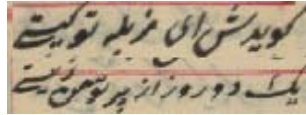 کویدش ای مزبله تو کیستے
یک دو روز از پرتو من زیستے